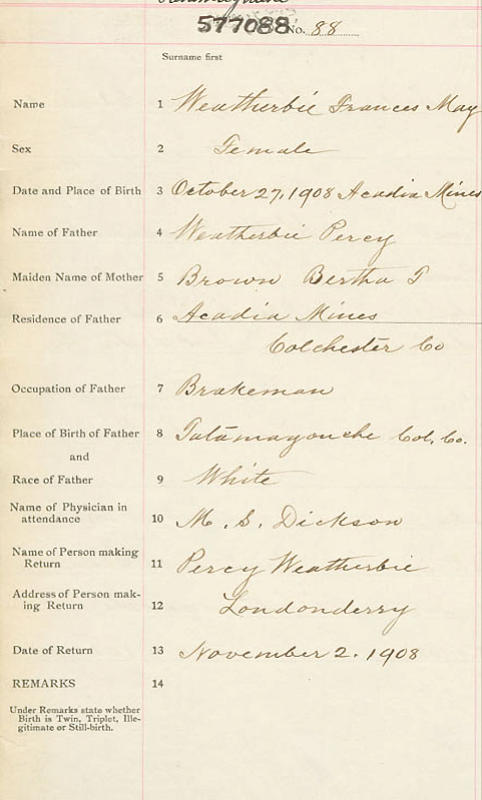 577088 No. 88
Surname first
Name 1 Weatherbie Frances May
Sex 2 Female
Date and Place of Birth 3 October 27, 1908 Acadia Mines
Name of Father 4 Weatherbie Percy
Maiden Name of Mother 5 Brown Bertha T
Residence of Father 6 Acadia Mines
Colchester Co
Occupation of Father 7 Brakeman
Place of Birth of Father 8 Tatamagouche Col. Co.
and
Race of Father 9 White
Name of Physician in
attendance 10 M. S. Dickson
Name of Person making
Return 11 Percy Weatherbie
Address of Person mak-
ing Return 12 Londonderry
Date of Return 13 November 2. 1908
REMARKS 14
Under Remarks state whether
Birth is Twin, Triplet, Ille-
gitimate or Still-birth.